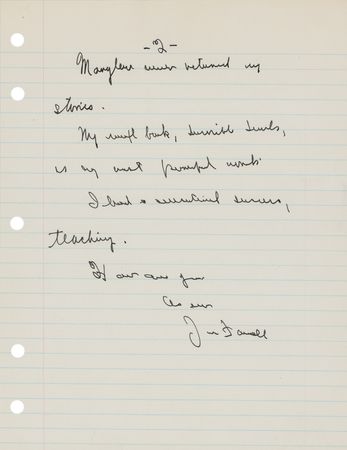 -2-
never returned my
stories.
My next book, Invisible Swords,
is my most powerful work.
I had a sensational success,
teaching.
How are you
As ever
Jim Farrell